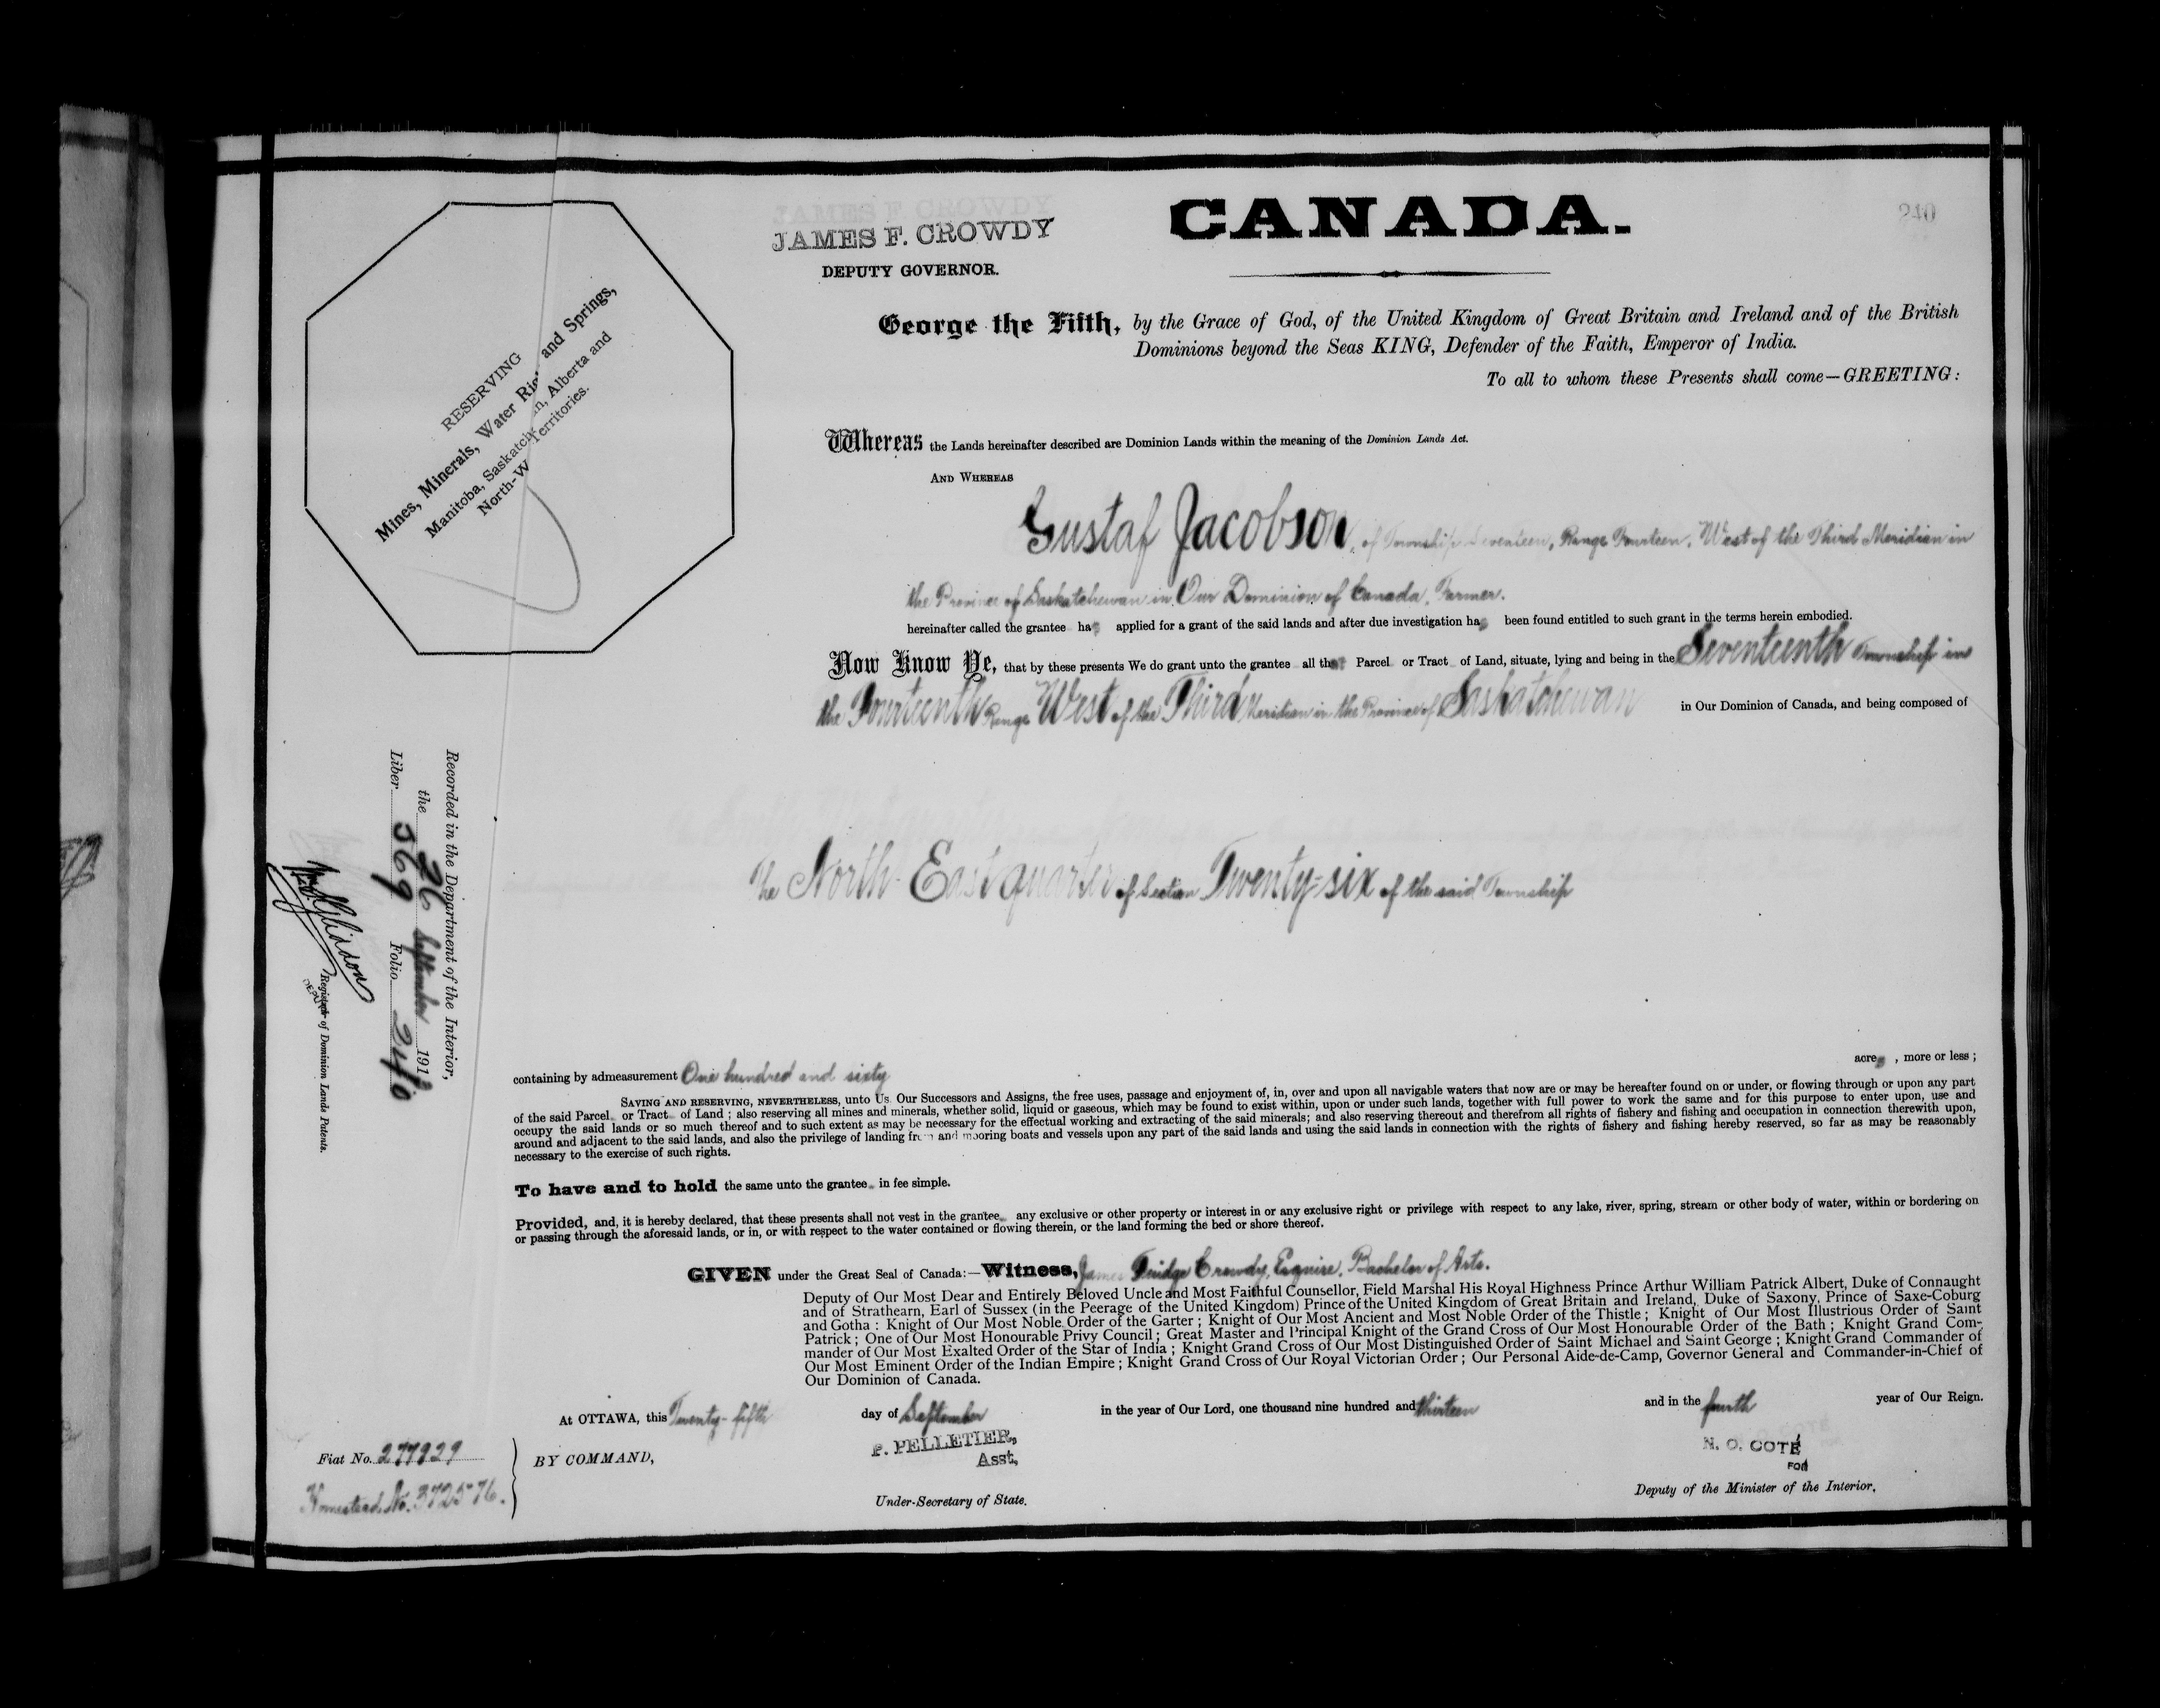 240
JAMES F. CROWDY
JAMES F. CROWDY
DEPUTY GOVERNOR.
CANADA.
George the Fifth, by the Grace of God, of the United Kingdom of Great Britain and Ireland and of the British
Dominions beyond the Seas KING, Defender of the Faith, Emperor of India.
To all to whom these Presents shall come—GREETING:
RESERVING
Mines, Minerals, Water Rig and Springs,
Manitoba, Saskatch n, Alberta and
North-W Territories.
Whereas the Lands hereinafter described are Dominion Lands within the meaning of the Dominion Lands Act.
AND WHEREAS
Gustaf Jacobson, of Township Seventeen, Range Fourteen, West of the Third Meridian in
the Province of Saskatchewan in Our Dominion of Canada, Farmer.
hereinafter called the grantee has applied for a grant of the said lands and after due investigation has been found entitled to such grant in the terms herein embodied.
Now Know Ye, that by these presents We do grant unto the grantee all that Parcel or Tract of Land, situate, lying and being in the Seventeenth Township in
the Fourteenth Range West of the Third Meridian in the Province of Saskatchewan in Our Dominion of Canada, and being composed of
The North-East quarter of Section Twenty-six of the said Township
containing by admeasurement One hundred and sixty acres, more or less;
SAVING AND RESERVING, NEVERTHELESS, unto Us Our Successors and Assigns, the free uses, passage and enjoyment of, in, over and upon all navigable waters that now are or may be hereafter found on or under, or flowing through or upon any part
of the said Parcel or Tract of Land; also reserving all mines and minerals, whether solid, liquid or gaseous, which may be found to exist within, upon or under such lands, together with full power to work the same and for this purpose to enter upon, use and
occupy the said lands or so much thereof and to such extent as may be necessary for the effectual working and extracting of the said minerals; and also reserving thereout and therefrom all rights of fishery and fishing and occupation in connection therewith upon,
around and adjacent to the said lands, and also the privilege of landing from and mooring boats and vessels upon any part of the said lands and using the said lands in connection with the rights of fishery and fishing hereby reserved, so far as may be reasonably
necessary to the exercise of such rights.
To have and to hold the same unto the grantee in fee simple.
Provided, and, it is hereby declared, that these presents shall not vest in the grantee any exclusive or other property or interest in or any exclusive right or privilege with respect to any lake, river, spring, stream or other body of water, within or bordering on
or passing through the aforesaid lands, or in, or with respect to the water contained or flowing therein, or the land forming the bed or shore thereof.
GIVEN under the Great Seal of Canada:—Witness, James Fuidge Crowdy, Esquire, Bachelor of Arts.
Deputy of Our Most Dear and Entirely Beloved Uncle and Most Faithful Counsellor, Field Marshal His Royal Highness Prince Arthur William Patrick Albert, Duke of Connaught
and of Strathearn, Earl of Sussex (in the Peerage of the United Kingdom) Prince of the United Kingdom of Great Britain and Ireland, Duke of Saxony, Prince of Saxe-Coburg
and Gotha: Knight of Our Most Noble Order of the Garter; Knight of Our Most Ancient and Most Noble Order of the Thistle; Knight of Our Most Illustrious Order of Saint
Patrick; One of Our Most Honourable Privy Council; Great Master and Principal Knight of the Grand Cross of Our Most Honourable Order of the Bath; Knight Grand Com-
mander of Our Most Exalted Order of the Star of India; Knight Grand Cross of Our Most Distinguished Order of Saint Michael and Saint George; Knight Grand Commander of
Our Most Eminent Order of the Indian Empire; Knight Grand Cross of Our Royal Victorian Order; Our Personal Aide-de-Camp, Governor General and Commander-in-Chief of
Our Dominion of Canada.
At OTTAWA, this Twenty-fifth day of September in the year of Our Lord, one thousand nine hundred and thirteen and in the fourth year of Our Reign.
Fiat No. 277829
Homestead No. 372576.
BY COMMAND,
P. PELLETIER,
Asst,
Under-Secretary of State.
N. O. COTÉ
FOR
Deputy of the Minister of the Interior.
Recorded in the Department of the Interior,
the 26 September 1913
Liber 569 Folio 240
DEPUTY
Registrar of Dominion Lands Patents.